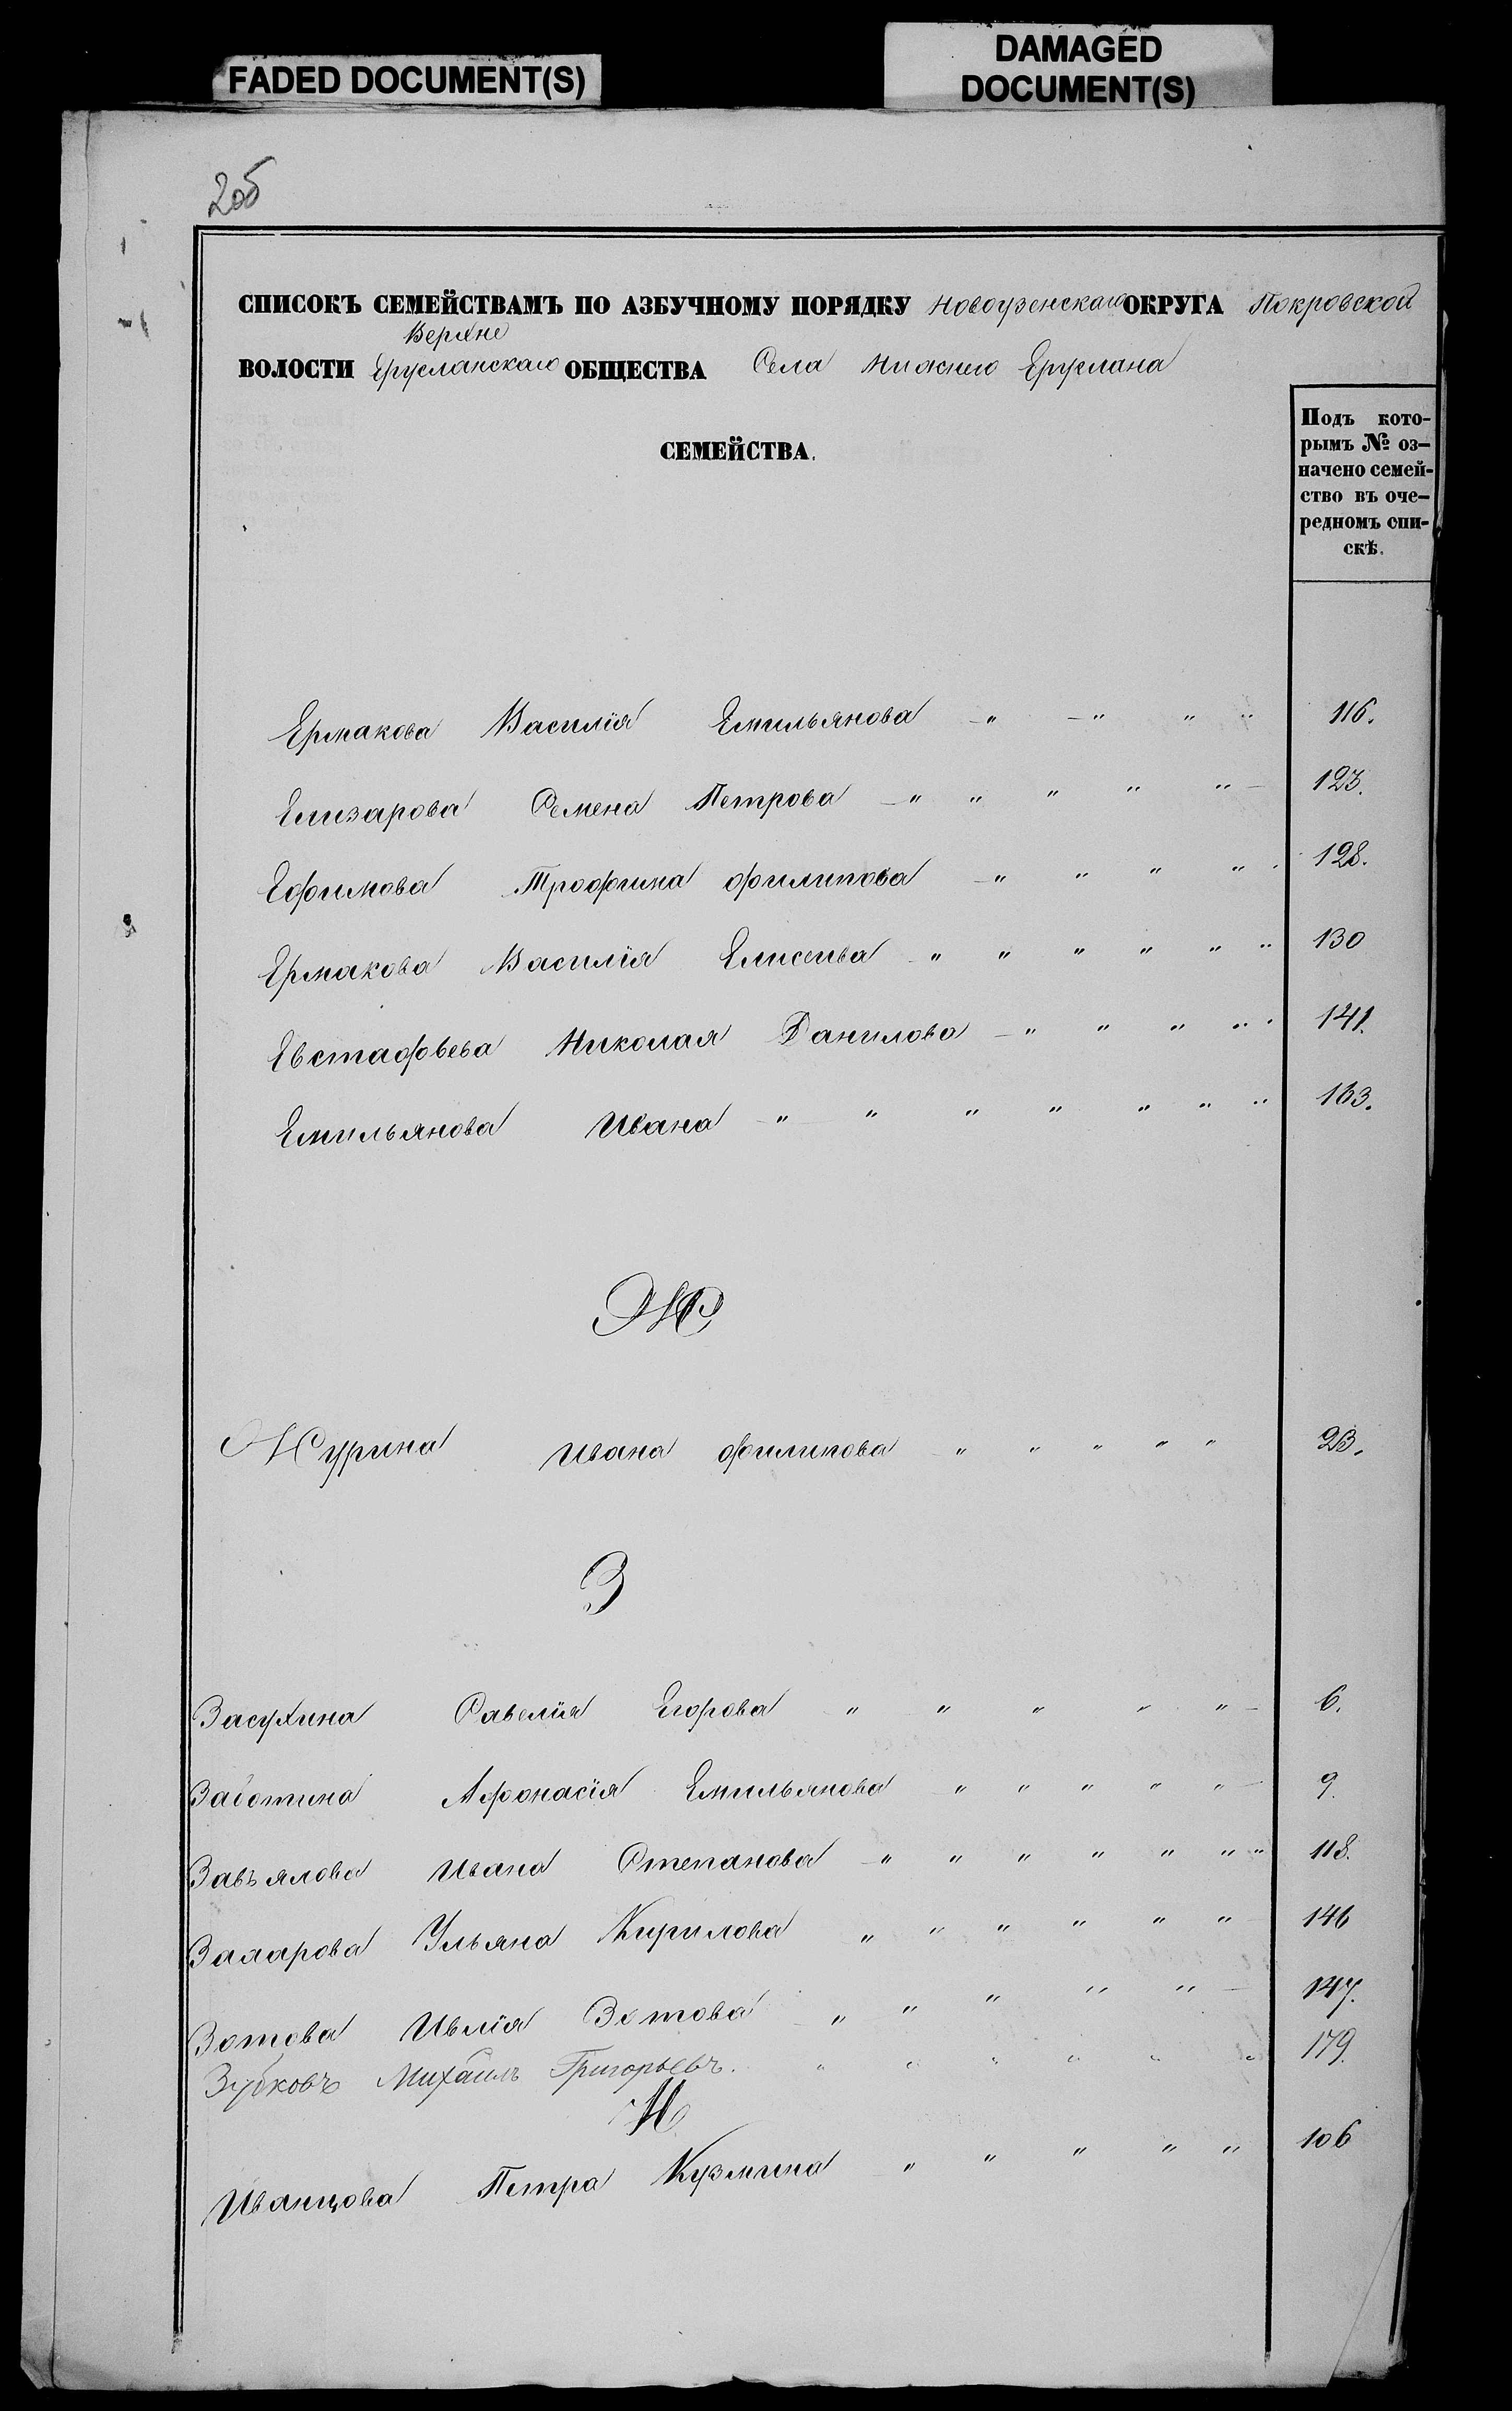 FADED DOCUMENT(S)
DAMAGED
DOCUMENT(S)
205
СПИСОКЪ СЕМЕЙСТВАМЪ ПО АЗБУЧНОМУ ПОРЯДКУ Новоузенскаго ОКРУГА Покровской
Верхне
ВОЛОСТИ Ерусланскаго ОБЩЕСТВА Села Нижнего Еруслана
Подъ кото-
рымъ № оз-
начено семей-
ство въ оче-
редномъ спи-
скѣ.
СЕМЕЙСТВА.
Ермакова Василія Емильянова - " - " " " 116.
Елизарова Семена Петрова - " " " " " - 123.
Ефимова Трофима Филипова - " " " " 128.
Ермакова Василія Елисеева " " " " " " 130
Евстафьева Николая Данилова - " " " " 141.
Емильянова Ивана - " " " " " " " 163.
Ж
Журина Ивана Филипова " " " " " 23.
З
Засухина Савелія Егорова " " " " " - 6.
Заботина Афонасія Емильянова " " " " " - 9.
Завьялова Ивана Степанова - " " " " " " " 118.
Захарова Ульяна Кирилова " " " " " " 146
Зотова Ивлія Зотова " " " " " - 147.
Зубковъ Михаилъ Григорьевъ. " " " " " " 179.
И
Иванцова Петра Кузмина " " " " " 106